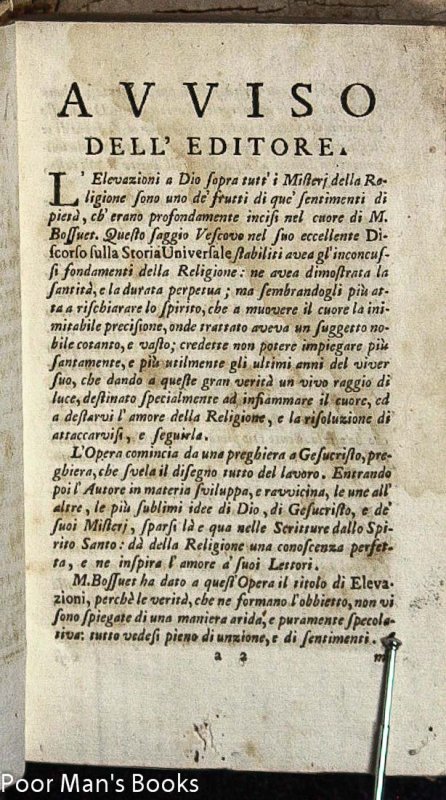 AVVISO
DELL' EDITORE.
L' Elevazioni a Dio ſopra tutt' i Miſterj della Re-
ligione ſono uno de' frutti di que' ſentimenti di
pietà, ch' erano profondamente inciſi nel cuore di M.
Boſſuet. Queſto ſaggio Veſcovo nel ſuo eccellente Di-
ſcorſo ſulla Storia Univerſale ſtabiliti avea gl'inconcuſ-
ſi fondamenti della Religione: ne avea dimoſtrata la
ſantità, e la durata perpetua; ma ſembrandogli più at-
ta a riſchiarare lo ſpirito, che a muovere il cuore la ini-
mitabile preciſione, onde trattato aveva un ſuggetto no-
bile cotanto, e vaſto; credette non potere impiegare più
ſantamente, e più utilmente gli ultimi anni del viver
ſuo, che dando a queſte gran verità un vivo raggio di
luce, deſtinato ſpecialmente ad infiammare il cuore, ed
a deſtarvi l' amore della Religione, e la riſoluzione di
attaccarviſi, e ſeguirla.
L'Opera comincia da una preghiera a Geſucriſto, pre-
ghiera, che ſvela il diſegno tutto del lavoro. Entrando
poi l'Autore in materia ſviluppa, e ravvicina, le une all'
altre, le più ſublimi idee di Dio, di Geſucriſto, e de'
ſuoi Miſterj, ſparſi là e qua nelle Scritture dallo Spi-
rito Santo: dà della Religione una conoſcenza perfet-
ta, e ne inſpira l' amore a' ſuoi Lettori.
M. Boſſuet ha dato a queſt' Opera il titolo di Eleva-
zioni, perchè le verità, che ne formano l'obbietto, non vi
ſono ſpiegate di una maniera arida, e puramente ſpecola-
tiva: tutto vedeſi pieno di unzione, e di ſentimenti.
a 2
Poor Man's Books